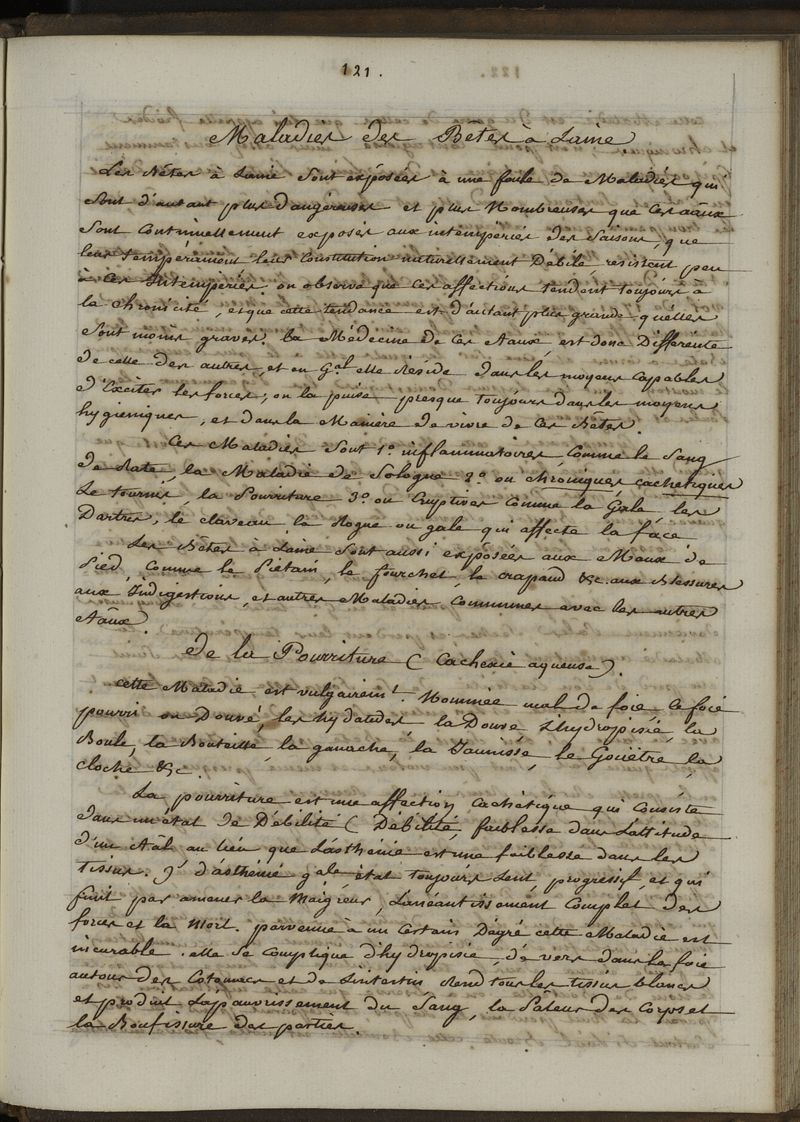 121.
Maladies des Bêtes à Laine
Les Bêtes à Laine Sont exposées à une foule de Maladies qui
Sont d'autant plus dangéreuses et plus Nombreuses que Ces aāux
Sont Continuellement exposés aux intempéries des Saisons, que
leur tempérament leur Constitution naturellement Débile, résistent peu
à Ces Intempéries, on observe que ces affections tendent toujours à
la chronicité, et que cette tendance est d'autant plus grande qu'elles
Sont moins graves. La Médecine de Ces Aaux, est donc Différente
de celle des autres, et en Gal elle Réside dans les moyens Capables
d'Exciter les forces, on la puise presque toujours dans les moyens
hygieniques, et dans la Manière de vivre de Ces Bêtes.
Ces Maladies Sont 1o. inflammatoires, Comme le Sang
de Rate, la Maladie de Sologne 2o. ou chroniques cachetiques
Le tournis, la Pourriture 3o. ou Eruptives Comme la Gale, les
Dartres, le claveau, la Nogue ou gale qui affecte la face.
Les Bêtes à Laine Sont aussi expôsées aux Maux de
Pied, Comme le Piétain, le fourchet, le crapaud &c. aux Blessures
aux Indigestions, et autres Maladies Communes avec les autres
Aāux.
De la Pourriture (Cachexie aqueuse).
cette Maladie est vulgairemt. Nommée mal de foie, le foie
pourri ou Douvé, les hydatides, la Douve, L'hydropisie, la
Boule, la Bouteille, la ganache, la Jaunisse, le Gouêtre, la
cloche &c.
La pourriture est une affection Cachétique qui Consiste
dans un état de Débilité (Débilité, faiblesse dans L'attitude
d'un Aāl au lieu que L'asthénie est une faiblesse dans les
tissus.) d'asthénie gale état toujours Lent, progressif, et qui
finit par amener la Maigreur, L'anéantissement Complet des
forces et la Mort. parvenue à un Certain Dégré cette Maladie est
incurable. elle Se Complique d'hydropisie, de vers dans le foie
autour des Estomacs et de L'intestin Rend tous les tissus blancs
et produit L'apauvrissement du Sang, la Paleur des Corps et
la Bouffissure des parties.